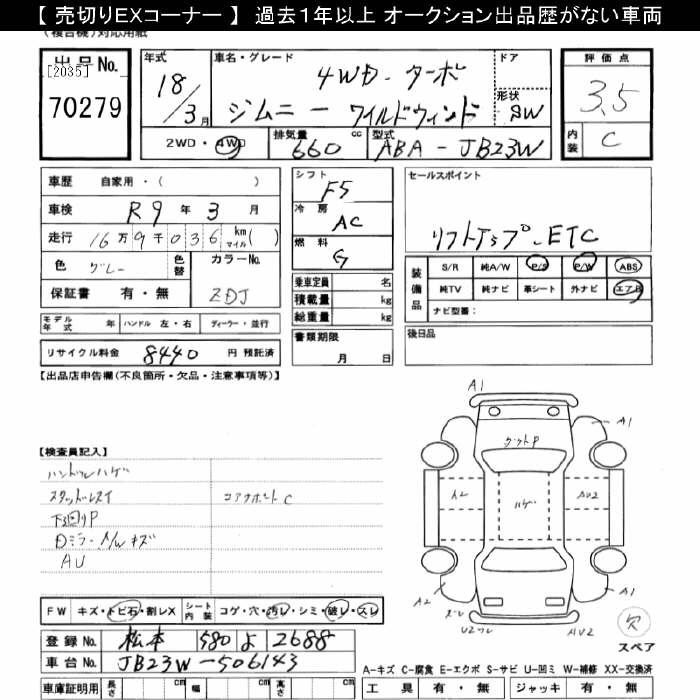 【 売切りEXコーナー 】 過去1年以上 オークション出品歴がない車両
(複合機)対応用紙
出品No. [2035] 70279
年式 18/3月
車名・グレード 4WD. ターボ ジムニー ワイルドウィンド
ドア
形状 SW
評価点 3.5
内装 C
2WD・4WD
排気量 660 cc
型式 ABA-JB23W
車歴 自家用・( )
車検 R9年 3月
走行 16万9千036 km マイル( )
色 グレー 色替
カラーNo. ZDJ
保証書 有・無
シフト F5
冷房 AC
燃料 G
乗車定員 名
積載量 kg
総重量 kg
セールスポイント
リフトアップ. ETC
装備品 S/R 純A/W P/S P/W ABS
純TV 純ナビ 革シート 外ナビ エアB
ナビ型番:
モデル年式 年 ハンドル 左・右 ディーラー・並行
書類期限 月 日
後日品
リサイクル料金 8440 円 預託済
【出品店申告欄(不良箇所・欠品・注意事項等)】
A1
A1
【検査員記入】
ハンドルハゲ
スタッドレスタイ
コアサポートC
下回りP
Dミラー A/Wキズ
AU
A2
ハゲ
AU2
A2
A1
AU2
欠
スペア
FW キズ・トビ石・割レX
シート内装 コゲ・穴・汚レ・シミ・破レ・スレ
登録No. 松本 580 よ 2688
車台No. JB23W-506143
A−キズ C−腐食 E−エクボ S−サビ U−凹ミ W−補修 XX−交換済
車庫証明用 長さ cm 幅 cm 高さ cm
工具 有・無 ジャッキ 有・無